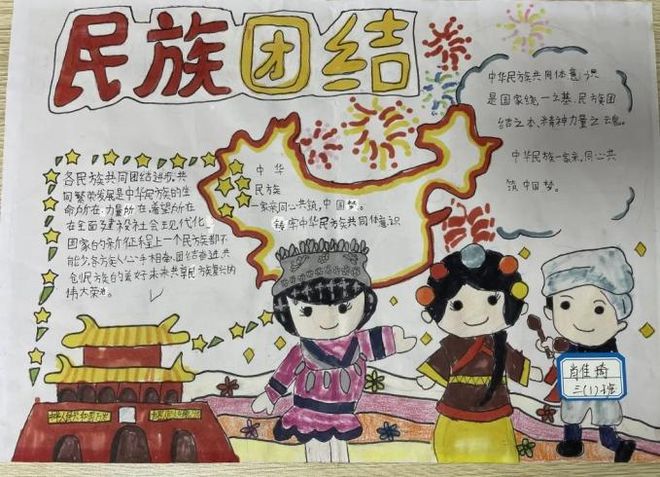 民族团结
各民族共同团结进步,共
同繁荣发展是中华民族的生
命所在,力量所在,希望所在
在全面建设社会主现代化
国家的新征程上一个民族都不
能少,各方族人心手相牵,团结奋进,共
创民族的美好未来,共享民族复兴的
伟大荣光。
中华
民族
一家亲,同心共筑,中国梦。
铸牢中华民族共同体意识
中华民族共同体意识
是国家统一之基、民族团
结之本、精神力量之魂。
中华民族一家亲,同心共
筑中国梦。
三(1)班